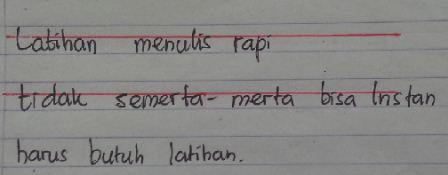 Latihan menulis rapi
tidak semerta-merta bisa Instan
harus butuh latihan.